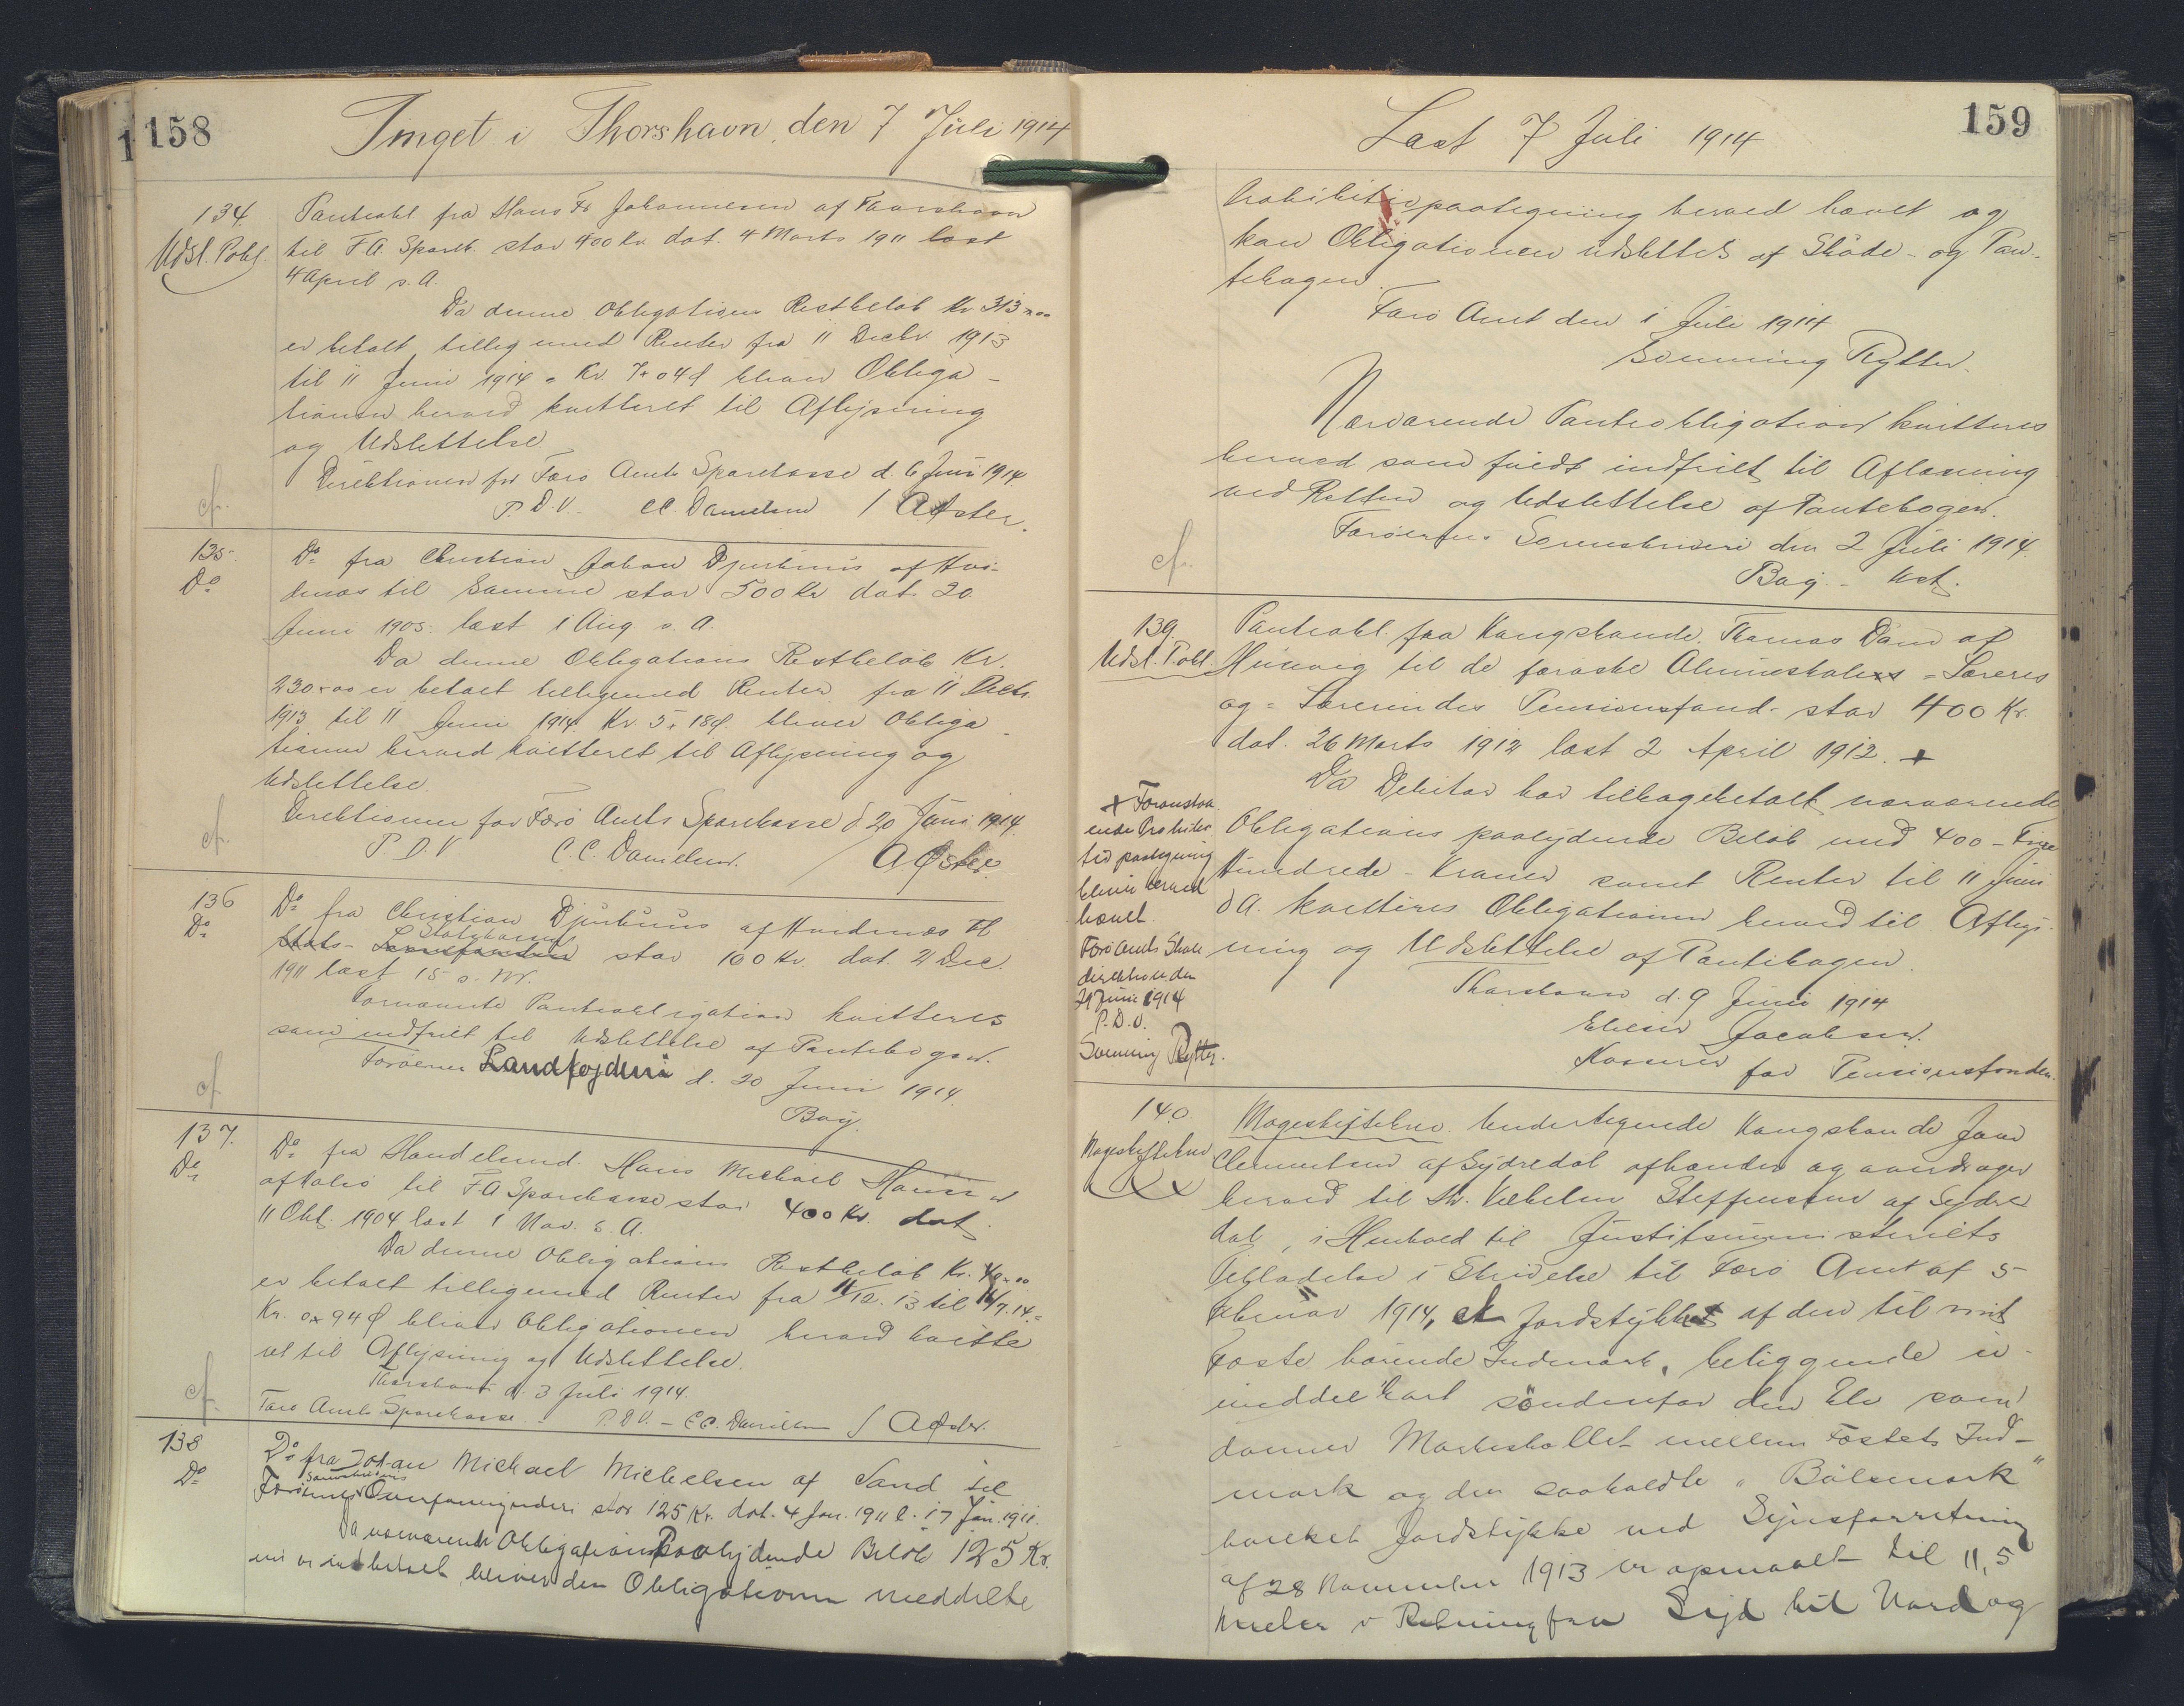 158
Tinget i Thorshavn, den 7 Juli 1914
134.
Udsl. Pobl.
Panteobl fra Hans Fr Johannesen af Thorshavn
til F.A. Spark. stor 400 Kr. dat. 4 Marts 1911 læst
4 April s. A.
Da denne Obligations Restbeløb Kr 313 x 00
er betalt tillig med Renter fra 11 Decbr. 1913
til 11 Juni 1914 = Kr. 7 x 04 Ø bliver Obliga-
tionen herved kvitteret til Aflysning
og Udslettelse.
Direktionen for Færø Amts Sparekasse d. 6 Juni 1914
P. D. V. C.C. Danielsen / A Øster.
cf.
135.
Do
Do fra Christian Johan Djurhuus af Hvi-
denæs til Samme stor 500 Kr dat. 20.
Juni 1905. læst 1 Aug. s. A.
Da denne Obligations Restbeløb Kr.
230 x 00 er betalt tilligemed Renter fra 11 Decbr.
1913 til 11 Juni 1914 Kr. 5 x 18 Ø. bliver Obliga-
tionen herved kvitteret til Aflysning og
Udslettelse.
Direktionen for Færø Amts Sparekasse d 20 Juni 1914.
P. D. V C. C. Danielsen. / A Øster.
cf.
136
Do
Do fra Christian Djurhuus af Hvidenæs til
Statskassen
Stats- stor 100 Kr. dat. 2 Dec.
1911 læst 15 s. M.
Fornævnte Panteobligation kvitteres
som indfriet til Udslettelse af Pantebogen.
Færøernes Landfogderi d. 30 Juni 1914.
Bay.
cf
137.
Do
Do fra Handelsmd. Hans Michael Hansen
af til F.A Sparekasse stor 400 Kr. dat.
11 Okt. 1904 læst 1 Nov. s. A.
Da denne Obligations Restbeløb Kr. 40 x 00
er betalt tilligemed Renter fra 11/12. 13 til 11/7. 14 =
Kr. 0 x 94 Ø bliver Obligationen herved kvitte
ret til Aflysning og Udslettelse.
Thorshavn d. 3 Juli 1914.
Færø Amts Sparekasse. P. D V. – C C. Danielsen / A Øster.
cf.
138
Do
Do fra Johan Michael Michelsen af Sand til
Færøernes Overformynderi stor 125 Kr. dat. 4 Jan. 1911 l. 17 Jan. 1911.
Da nærværende Obligations Paalydende Beløb 125 Kr.
nu er indbetalt, bliver den Obligationen meddelte
159
Læst 7 Juli 1914
Prohibitivpaategning herved hævet og
kan Obligationen udslettes af Skøde- og Pan-
tebogen.
Færø Amt den 1 Juli 1914
Svenning Rytter.
Nærværende Panteobligation kvitteres
herved som fuldt indfriet til Aflæsning
ved Retten og Udslettelse af Pantebogen.
Færøernes Sorenskriveri den 2 Juli 1914.
Bay. – Kst.
cf.
139.
Udsl. P.obl.
Panteobl. fra Kongsbonde Thomas Dam af
Husevig til de færøske Almueskoles = Læreres
og = Lærerinders Pensionsfond stor 400 Kr.
dat. 26 Marts 1912 læst 2 April 1912. +
Da Debitor har tilbagebetalt nærværende
Obligations paalydende Beløb med 400 – Fire
Hundrede – Kroner samt Renter til 11 Juni
d A. kvitteres Obligationen herved til Aflys-
ning og Udslettelse af Pantebogen.
Thorshavn d. 9 Juni 1914
Jacobsen.
Kasserer for Pensionsfonden.
+ Foranstaa
ende Prohibi
tivpaategning
bliver herved
hævet.
Færø Amts Skole
direktion den
Juni 1914
P. D. V.
Svenning Rytter.
140.
Mageskiftebrev
Mageskiftebrev. Undertegnede Kongsbonde Joen
Clementsen af Sydredal afhænder og overdrager
herved til Hr. Vilhelm Steffensen af Sydre
dal, i Henhold til Justitsministeriets
Tilladelse i Skrivelse til Færø Amt af 5
Februar 1914, et Jordstykke af den til mit
Fæste hørende Indmark, beliggende u-
middelbart søndenfor den Elv som
danner Markeskellet mellem Fæstets Ind-
mark og den saakaldte "Bølemark"
hvilket Jordstykke ved Synsforretning
af 28 November 1913 er opmaalt til 11,5
Meter i Retning fra Syd til Nord og